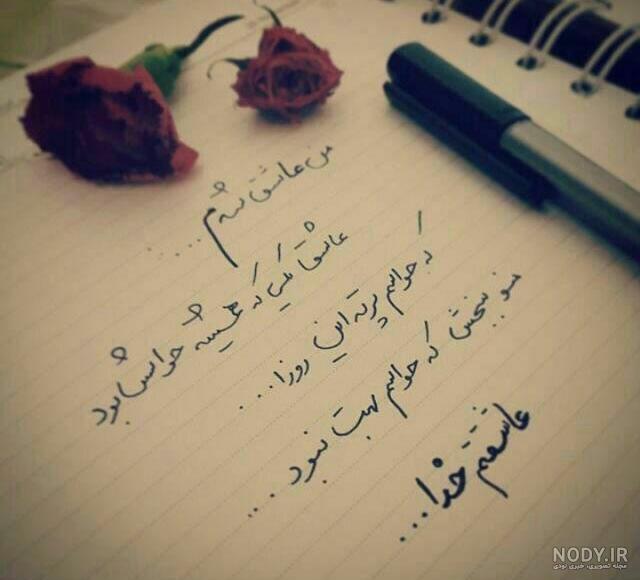 من عاشق شدم.....
عاشق یکی که همیشه حواسش بود
که حواسم پرته این روزا....
منو ببخش که حواسم بهت نبود...
عاشقتم خدا...
NODY.IR
مجله تصویری، خبری نودی